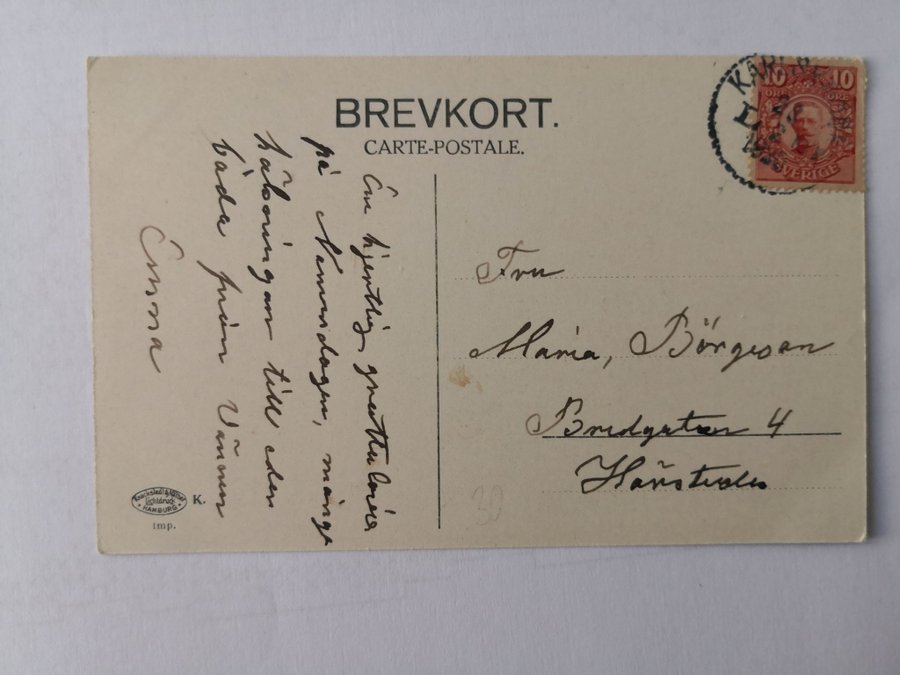 BREVKORT.
CARTE-POSTALE.
10 10
ÖRE ÖRE
SVERIGE
En hjertlig gratulation
på Namnsdagen, många
hälsningar till eder
båda från Vännen
Emma
Fru
Maria, Börgeson
Bredgatan 4
Härstedes
HAMBURG
K.
imp.
30